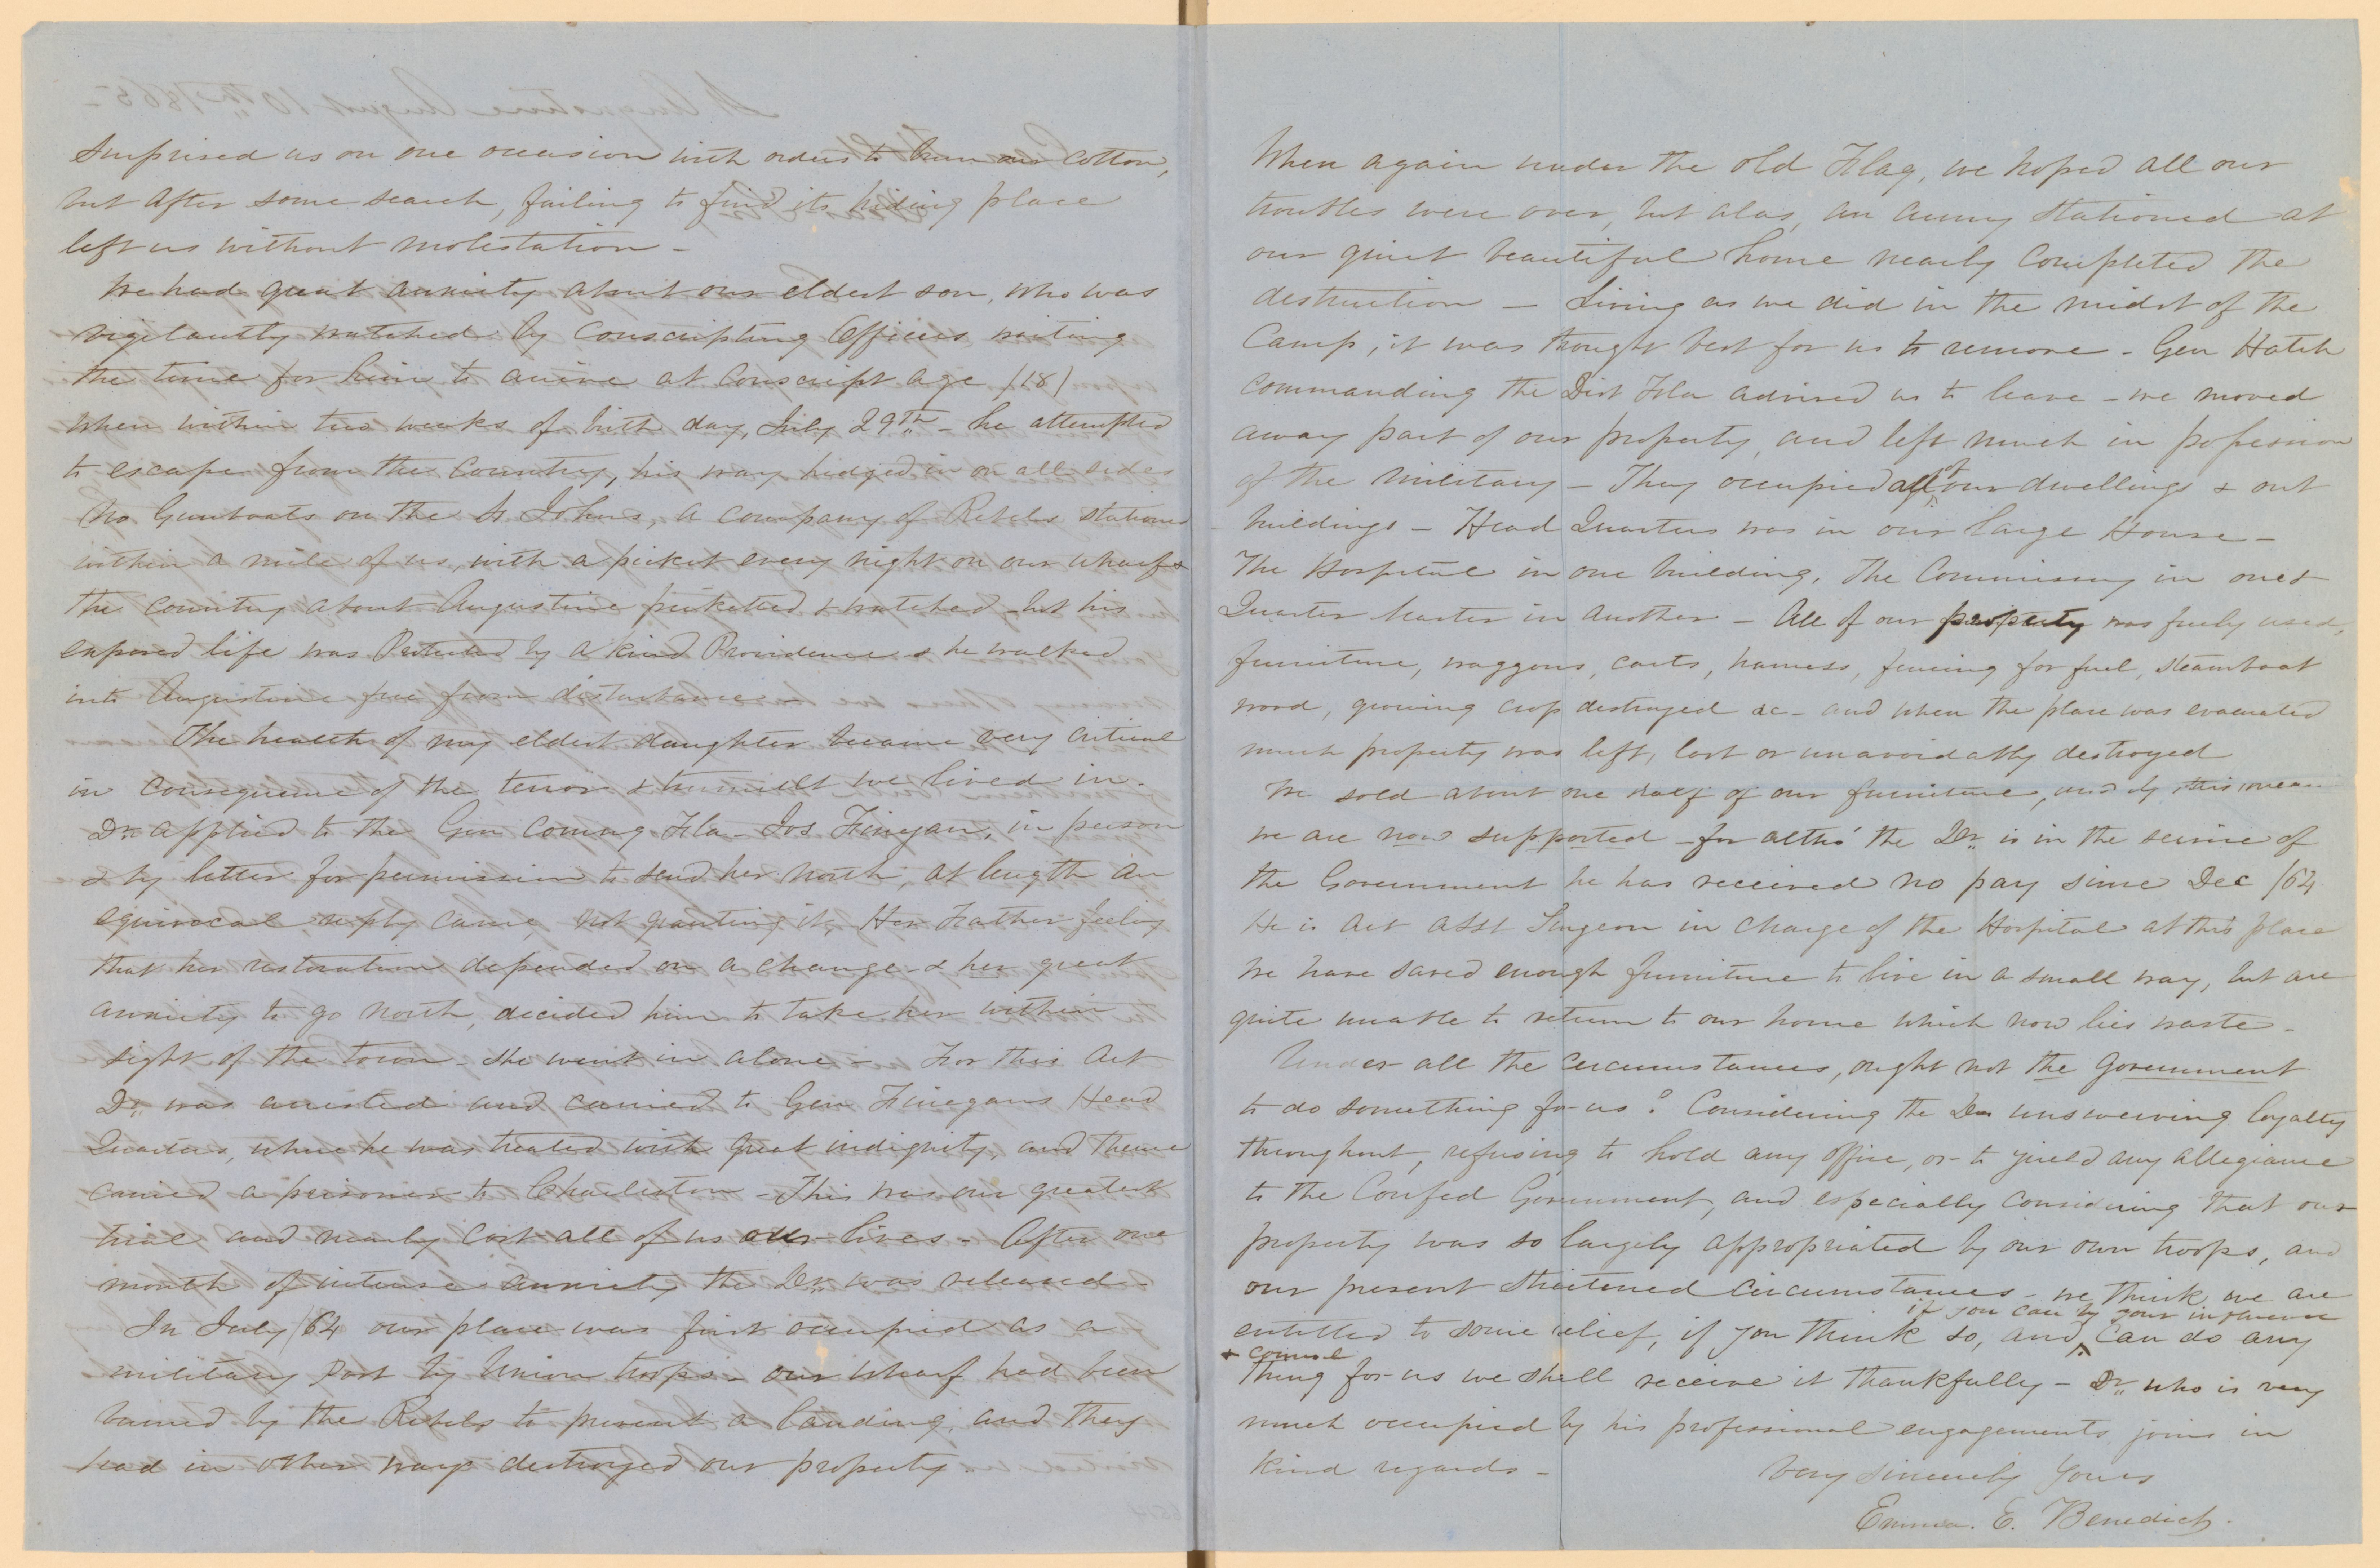 Surprised us on one occasion with orders to burn our cotton,
but after some search, failing to find its hiding place
left us without molestation -
We had great anxiety about our eldest son, who was
vigilantly watched by Conscripting Officers waiting
the time for him to arrive at Conscript age (18)
When within two weeks of birth day, July 29th - he attempted
to escape from the Country, his way hedged in on all sides
No Gunboats on the St Johns, a company of Rebels stationed
within a mile of us, with a picket every night on our wharf &
the country about Augustine picketted & watched - but his
exposed life was Protected by a kind Providence & he walked
into Augustine free from disturbance -
The health of my eldest daughter became very critical
in consequence of the terror & tumult we lived in -
Dr. applied to the Gen Comng Fla - Jos Finegan, in person
& by letter for permission to send her North, at length an
equivocal reply came, not granting it, Her Father feeling
that her restoration depended on a change - & her great
anxiety to go North, decided him to take her within
sight of the town - she went in alone - For this act
Dr. was arrested and carried to Gen Finegans Head
Quarters, where he was treated with great indignity, and thence
carried a prisoner to Charleston - This was our greatest
trial and nearly cost all of us our lives - After one
month of intense anxiety the Dr. was released -
In July /64 our place was first occupied as a
military Post by Union troops - our wharf had been
burned by the Rebels to prevent a landing, and they
had in other ways destroyed our property -
When again under the old Flag, we hoped all our
troubles were over, but alas, an army stationed at
our quiet beautiful home nearly completed the
destruction - Living as we did in the midst of the
Camp, it was thought best for us to remove - Gen Hatch
commanding the Dist Fla advised us to leave - we moved
away part of our property, and left much in possession
of the military - They occupied all of our dwellings & out
buildings - Head Quarters was in our large House -
The Hospital in one building, The Commissary in one &
Quarter Master in another - All of our property was freely used,
furniture, waggons, carts, harness, fencing for fuel, steamboat
wood, growing crop destroyed &c - and when the place was evacuated
much property was left, lost or unavoidably destroyed
We sold about one half of our furniture, and by this means
we are now supported - for altho' the Dr. is in the service of
the Government he has received no pay since Dec /64
He is Act Asst Surgeon in charge of the Hospital at this place
We have saved enough furniture to live in a small way, but are
quite unable to return to our home which now lies waste -
Under all the circumstances, ought not the Government
to do something for us? Considering the Drs unswerving loyalty
throughout, refusing to hold any office, or to yield any allegiance
to the Confed Government, and especially considering that our
property was so largely appropriated by our own troops, and
our present straitened circumstances - we think we are
entitled to some relief, if you think so, and if you can by your influence & counsel can do any
thing for us we shall receive it thankfully - Dr. who is very
much occupied by his professional engagements, joins in
kind regards -
Very Sincerely Yours
Emma. E. Benedict.